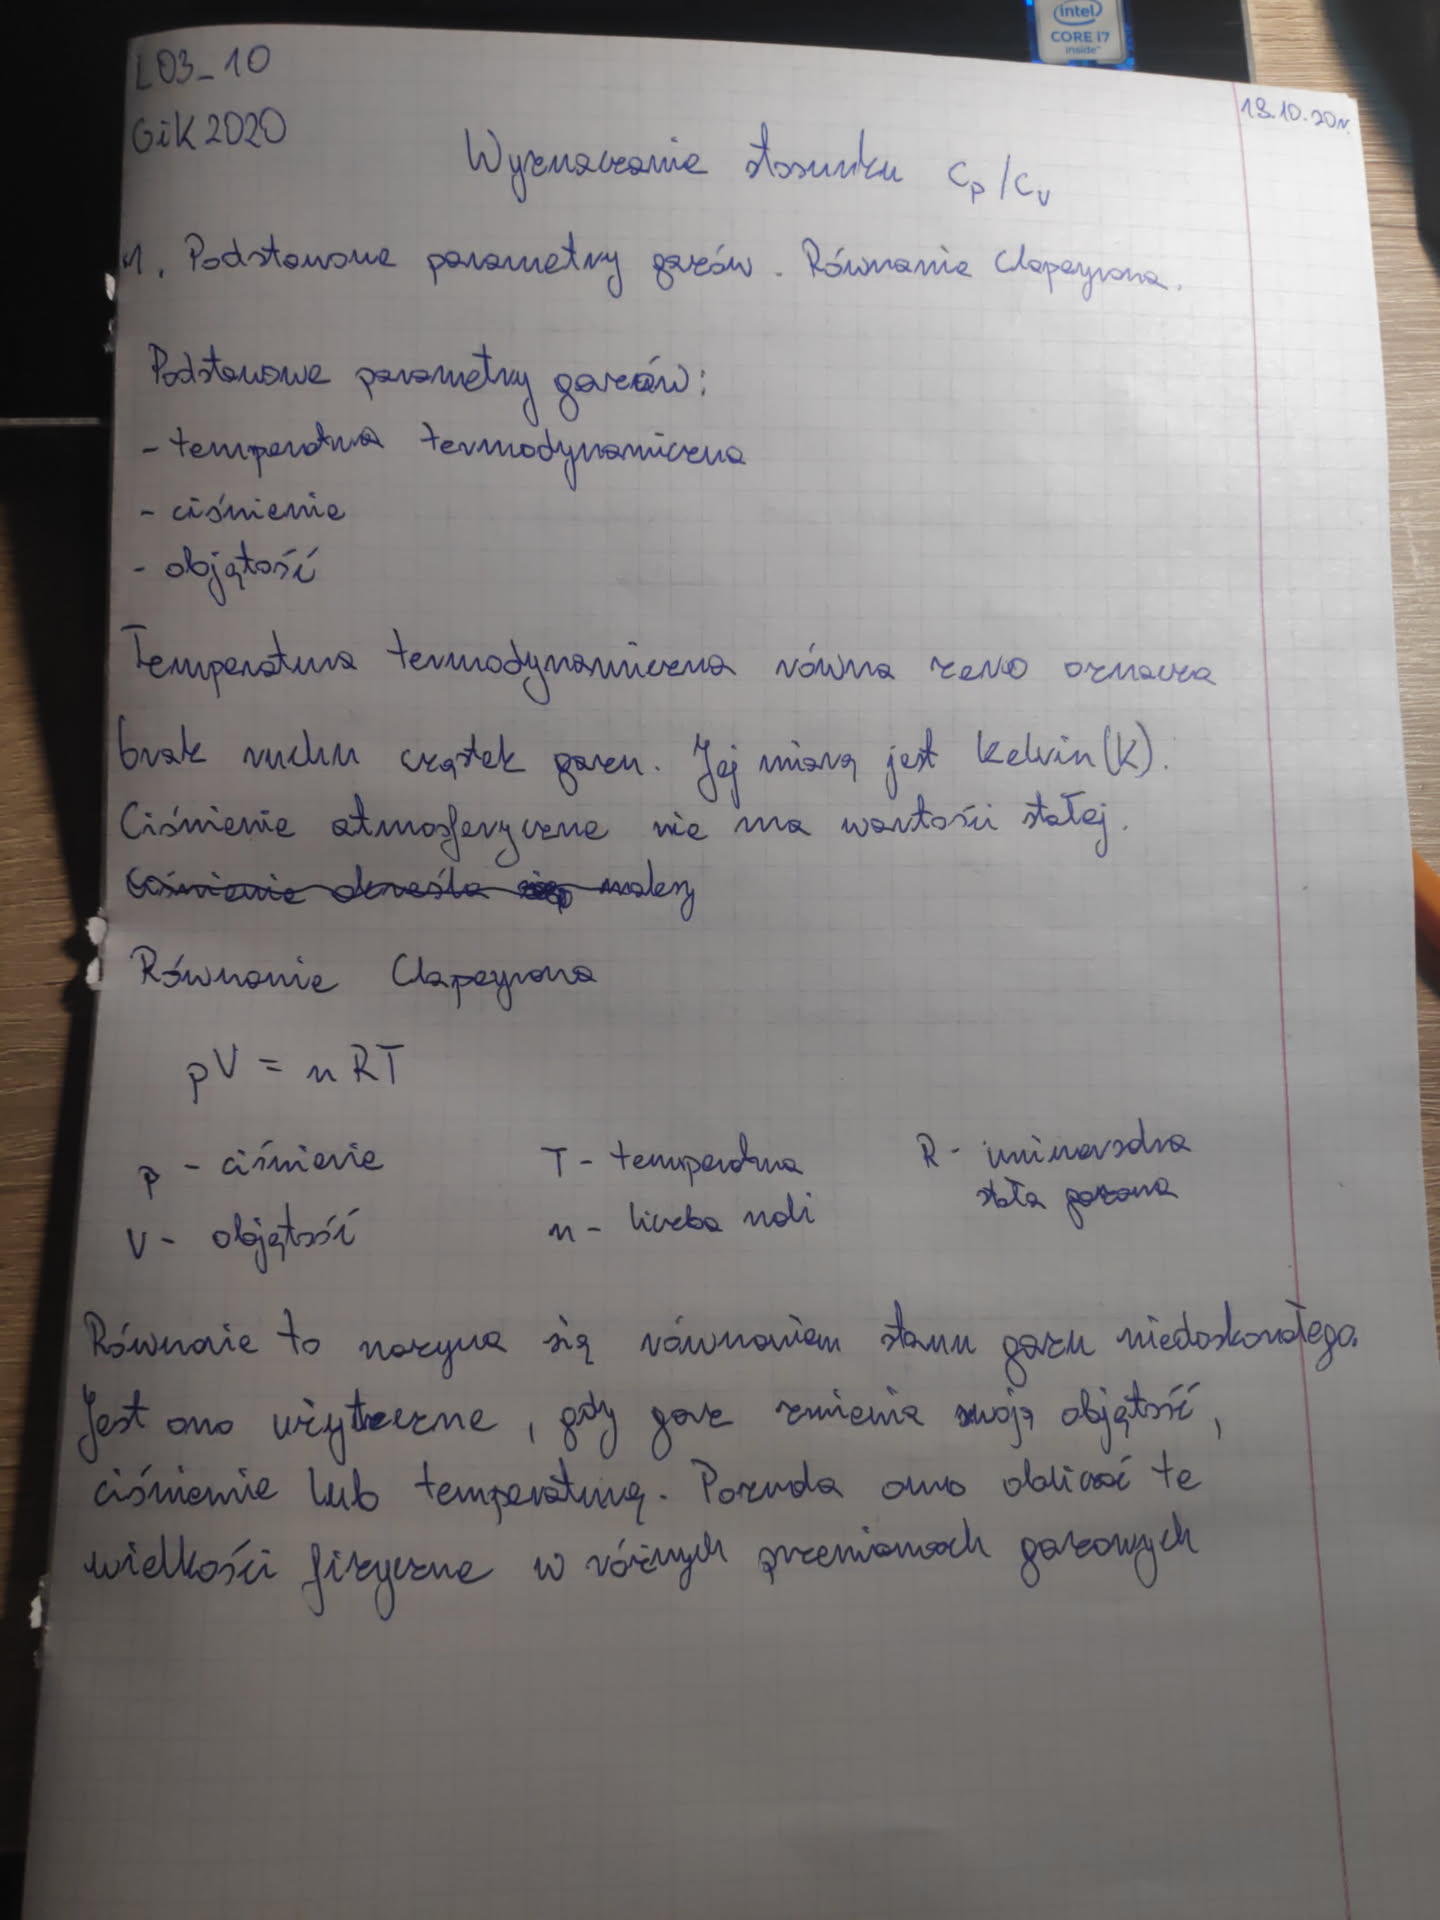 intel
CORE i7
inside™
L03_10
GiK 2020
19.10.20r.
Wyznaczanie stosunku Cp/Cv
1. Podstawowe parametry gazów. Równanie Clapeyrona.
Podstawowe parametry gazów:
- temperatura termodynamiczna
- ciśnienie
- objętość
Temperatura termodynamiczna równa zero oznacza
brak ruchu cząstek gazu. Jej miarą jest Kelvin (K).
Ciśnienie atmosferyczne nie ma wartości stałej.
Ciśnienie określa należy
Równanie Clapeyrona
pV = nRT
p - ciśnienie T - temperatura R - uniwersalna
stała gazowa
V - objętość n - liczba moli
Równanie to nazywa się równaniem stanu gazu niedoskonałego.
Jest ono użyteczne, gdy gaz zmienia swoją objętość,
ciśnienie lub temperaturę. Pozwala ono obliczać te
wielkości fizyczne w różnych przemianach gazowych